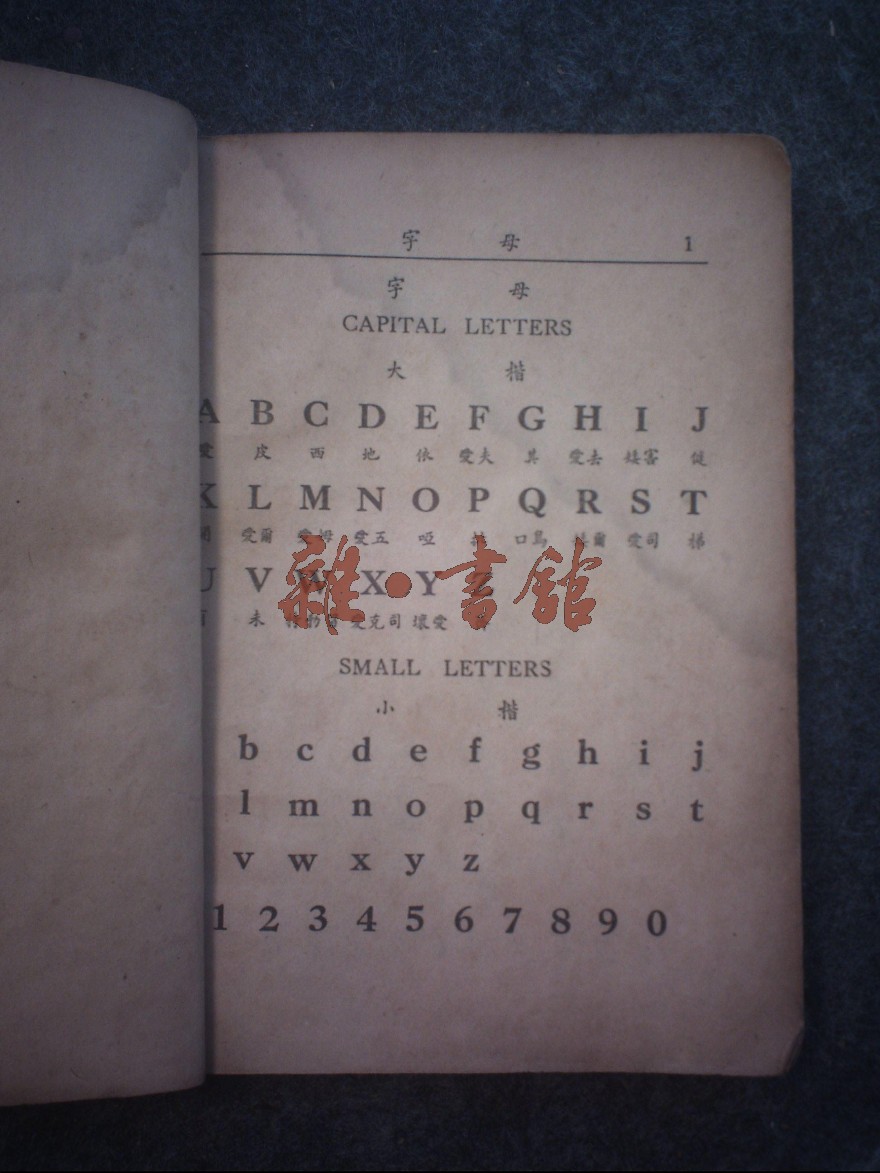 字 母 1
字 母
CAPITAL LETTERS
大 楷
A B C D E F G H I J
愛 皮 西 地 依 愛夫 其 愛去
K L M N O P Q R S T
愛爾 愛姆 愛五 啞 愛司 梯
U V W X Y Z
未 愛克司 壞愛
雜·書館
SMALL LETTERS
小 楷
b c d e f g h i j
l m n o p q r s t
v w x y z
1 2 3 4 5 6 7 8 9 0